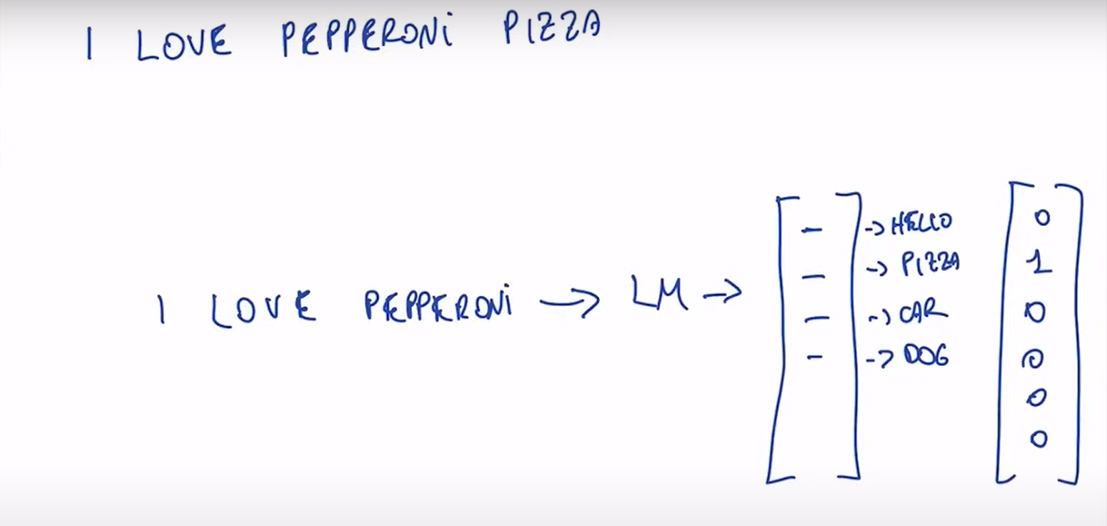 I LOVE PEPPERONi PIZZA
I LOVE PEPPERONi → LM → [ – – – – ]
-> HELLO
-> PIZZA
-> CAR
-> DOG
0
1
0
0
0
0